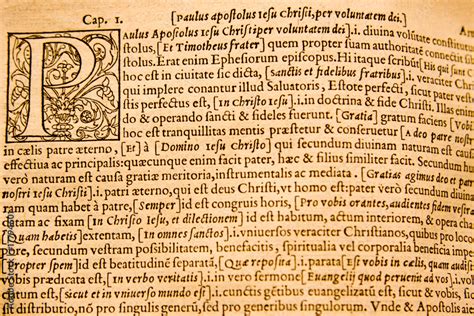 Cap. 1. [Paulus apostolus Iesu Christi, per voluntatem dei.]
P Aulus Apostolus Iesu Christi per voluntatem dei].i. diuina volũtate constitut
stolus, [Et Timotheus frater] quem propter suam authoritatẽ connectit sibi
stolus. Erat enim Ephesiorum episcopus. Hi itaque scribũt [His qui sunt
hoc est in ciuitate sic dicta, [sanctis et fidelibus fratribus].i. veraciter Christi
qui implere conantur illud Saluatoris, Estote perfecti, sicut pater vest
stis perfectus est, [in Christo Iesu].i. in doctrina & fide Christi. Illas enim
do & operando sancti & fideles fuerunt. [Gratia] gratum faciens [vo
hoc est tranquillitas mentis præstetur & conseruetur [a deo patre nostro
in cœlis patre æterno, [Et] à [Domino Iesu Christo] qui secundum diuinam naturam est
effectiua ac principalis: quæcunque enim facit pater, hæc & filius similiter facit. Secundum
verò naturam est causa gratiæ meritoria, instrumentalis ac mediata. [Gratias agimus deo et pa
nostri Iesu Christi].i. patri æterno, qui est deus Christi, vt homo est: pater verò secundum diuin
ram quam habet à patre, [Semper] id est congruis horis, [Pro vobis orantes, audientes fidem vestram
mitatem ac fixam [in Christo Iesu, et dilectionem] id est habitum, actum interiorem, & opera
Quam habetis] extentam, [in omnes sanctos].i. vniuersos veraciter Christianos, quibus pro
bono, secundum vestram possibilitatem, benefacitis, spiritualia vel corporalia beneficia imper
Propter spem] id est beatitudinẽ separatã, [Quæ reposita].i. parata [est vobis in cœlis] quam audistis
bis prouenientem, [in verbo veritatis].i. in vero sermone [Euangelij quod peruenit ad vos].i. vobis
tum est, [sicut et in vniuerso mundo est].i. cunctis gẽtibus euangelizatũ est, sicut & vobis
sit distributio, nõ pro singulis generũ, sed pro generibus singulorum. Vnde & Apostolis